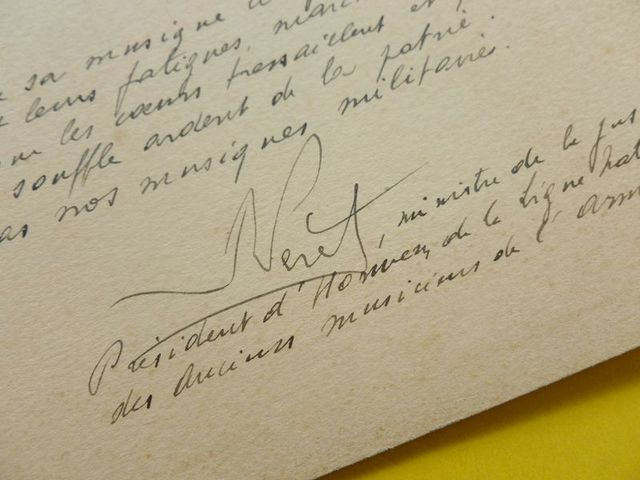 sa musique
leurs fatigues, marc
les cœurs tressaillent et
souffle ardent de la patrie.
nos musiques militaires.
Péret, ministre de la jus
Président d'Honneur, de la Ligue pat
des anciens musiciens de l'arm